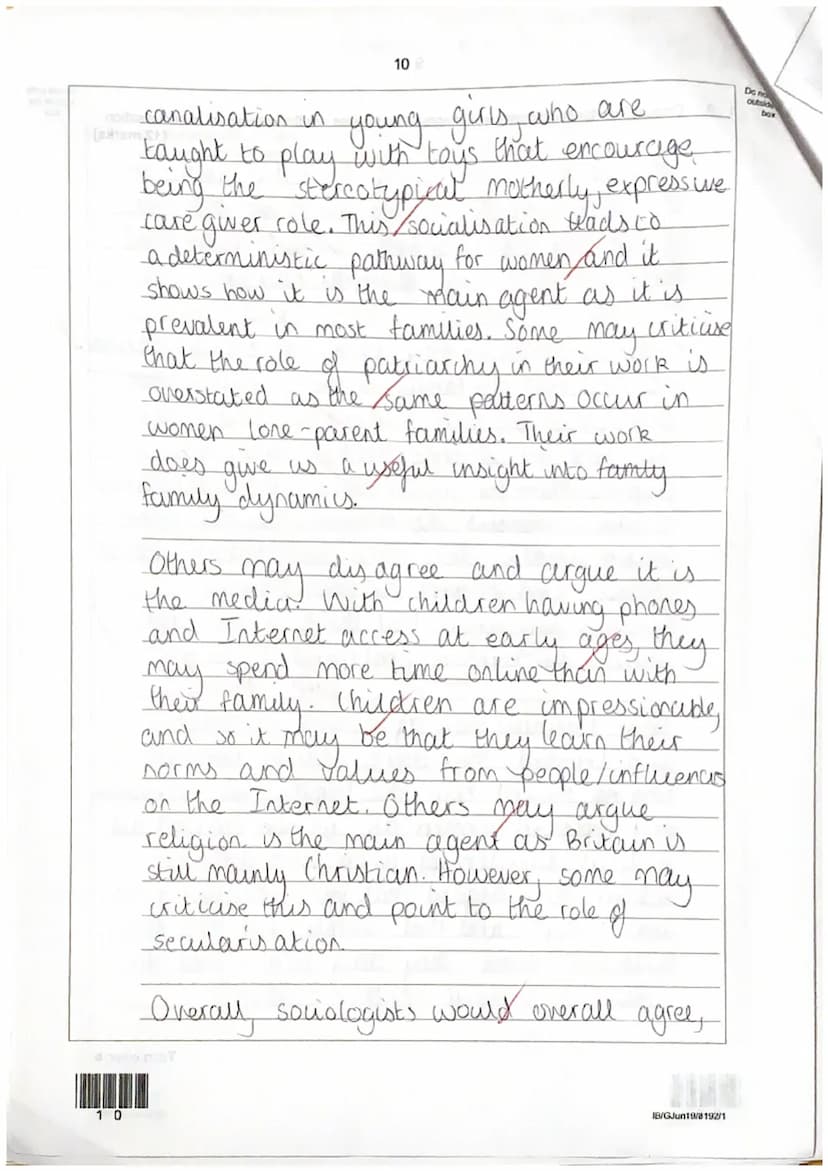 10
Do no
outside
box
canalisation in young girls, who are
taught to play with toys that encourage
being the stereotypical motherly, expressive
care giver role. This socialisation leads to
a deterministic pathway for women and it
shows how it is the main agent as it is
prevalent in most families. Some may criticise
that the role of patriarchy in their work is
overstated as the same patterns occur in
women lone-parent families. Their work
does give us a useful insight into famly
family dynamics.
Others may disagree and argue it is
the media. With children having phones
and Internet access at early ages, they
may spend more time online than with
their family. Children are impressionable,
and so it may be that they learn their
norms and values from people/influencers
on the Internet. Others may argue
religion is the main agent as Britain is
still mainly Christian. However, some may
criticise this and point to the role of
secularisation.
Overall, sociologists would overall agree,
1 0
IB/G/Jun19/8192/1